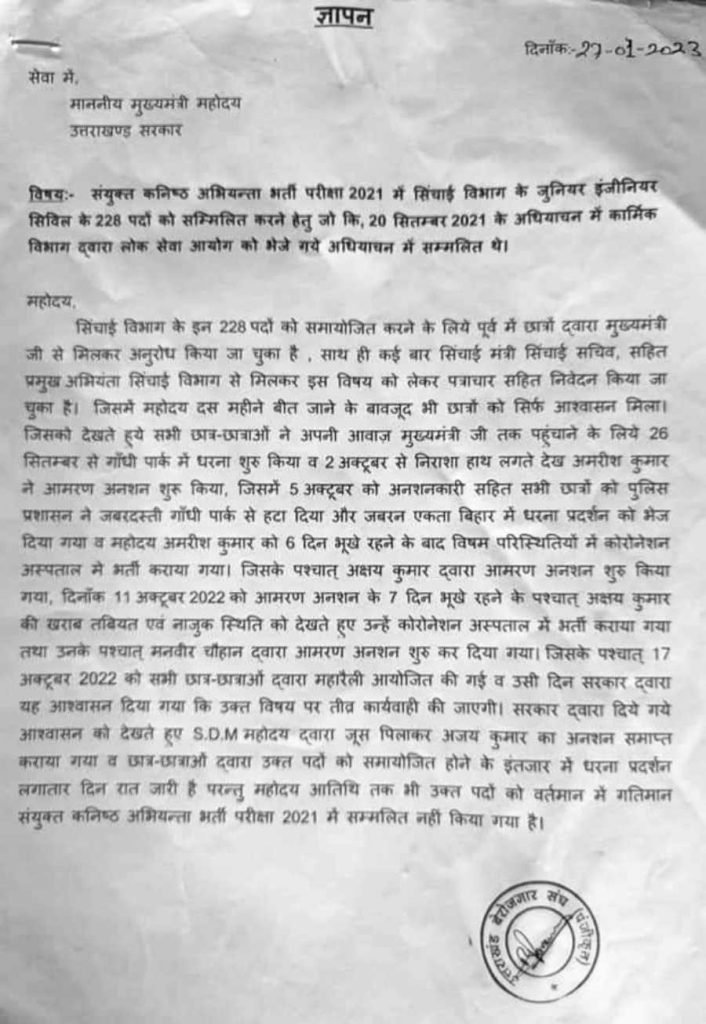 ज्ञापन
दिनाँक:-27-01-2023
सेवा में,
माननीय मुख्यमंत्री महोदय
उत्तराखण्ड सरकार
विषय:- संयुक्त कनिष्ठ अभियन्ता भर्ती परीक्षा 2021 में सिंचाई विभाग के जुनियर इंजीनियर
सिविल के 228 पदों को सम्मिलित करने हेतु जो कि, 20 सितम्बर 2021 के अधियाचन में कार्मिक
विभाग द्वारा लोक सेवा आयोग को भेजे गये अधियाचन में सम्मलित थे।
महोदय,
सिंचाई विभाग के इन 228 पदों को समायोजित करने के लिये पूर्व में छात्रों द्वारा मुख्यमंत्री
जी से मिलकर अनुरोध किया जा चुका है , साथ ही कई बार सिंचाई मंत्री सिंचाई सचिव, सहित
प्रमुख अभियंता सिंचाई विभाग से मिलकर इस विषय को लेकर पत्राचार सहित निवेदन किया जा
चुका है। जिसमें महोदय दस महीने बीत जाने के बावजूद भी छात्रों को सिर्फ आश्वासन मिला।
जिसको देखते हूये सभी छात्र-छात्राओं ने अपनी आवाज़ मुख्यमंत्री जी तक पहुंचाने के लिये 26
सितम्बर से गाँधी पार्क में धरना शुरु किया व 2 अक्टूबर से निराशा हाथ लगते देख अमरीश कुमार
ने आमरण अनशन शुरू किया, जिसमें 5 अक्टूबर को अनशनकारी सहित सभी छात्रों को पुलिस
प्रशासन ने जबरदस्ती गाँधी पार्क से हटा दिया और जबरन एकता बिहार में धरना प्रदर्शन को भेज
दिया गया व महोदय अमरीश कुमार को 6 दिन भूखे रहने के बाद विषम परिस्थितियों में कोरोनेशन
अस्पताल मे भर्ती कराया गया। जिसके पश्चात् अक्षय कुमार द्वारा आमरण अनशन शुरु किया
गया, दिनाँक 11 अक्टूबर 2022 को आमरण अनशन के 7 दिन भूखे रहने के पश्चात् अक्षय कुमार
की खराब तबियत एवं नाजुक स्थिति को देखते हुए उन्हें कोरोनेशन अस्पताल में भर्ती कराया गया
तथा उनके पश्चात् मनवीर चौहान द्वारा आमरण अनशन शुरु कर दिया गया। जिसके पश्चात् 17
अक्टूबर 2022 को सभी छात्र-छात्राओं द्वारा महारैली आयोजित की गई व उसी दिन सरकार द्वारा
यह आश्वासन दिया गया कि उक्त विषय पर तीव्र कार्यवाही की जाएगी। सरकार द्वारा दिये गये
आश्वासन को देखते हुए S.D.M महोदय द्वारा जूस पिलाकर अजय कुमार का अनशन समाप्त
कराया गया व छात्र-छात्राओं द्वारा उक्त पदों को समायोजित होने के इंतजार में धरना प्रदर्शन
लगातार दिन रात जारी है परन्तु महोदय आतिथि तक भी उक्त पदों को वर्तमान में गतिमान
संयुक्त कनिष्ठ अभियन्ता भर्ती परीक्षा 2021 में सम्मलित नहीं किया गया है।
उत्तराखंड बेरोजगार संघ (पंजीकृत)